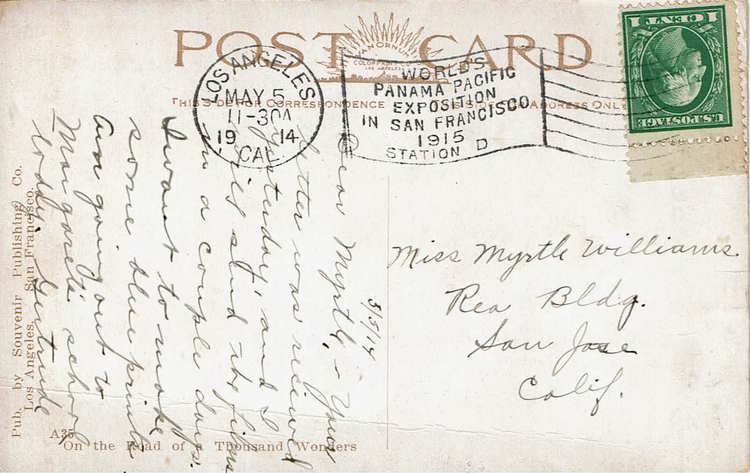 POST CARD
CALIFORNIA
THIS SIDE FOR CORRESPONDENCE
THIS SIDE FOR ADDRESS ONLY
LOS ANGELES
MAY 5
11-30A
1914
CAL.
WORLD'S
PANAMA PACIFIC
EXPOSITION
IN SAN FRANCISCO
1915
STATION D
U.S. POSTAGE
1 CENT 1
3/5/14
Dear Myrtle, - Your
letter was received
yesterday and I
will send the films
in a couple days.
I want to make
some blue prints
Am going out to
Margaret's school
today. Gertrude
Miss Myrtle Williams
Rea Bldg.
San Jose
Calif.
Pub. by Souvenir Publishing Co.
Los Angeles. San Francisco.
A35
On the Road of a Thousand Wonders